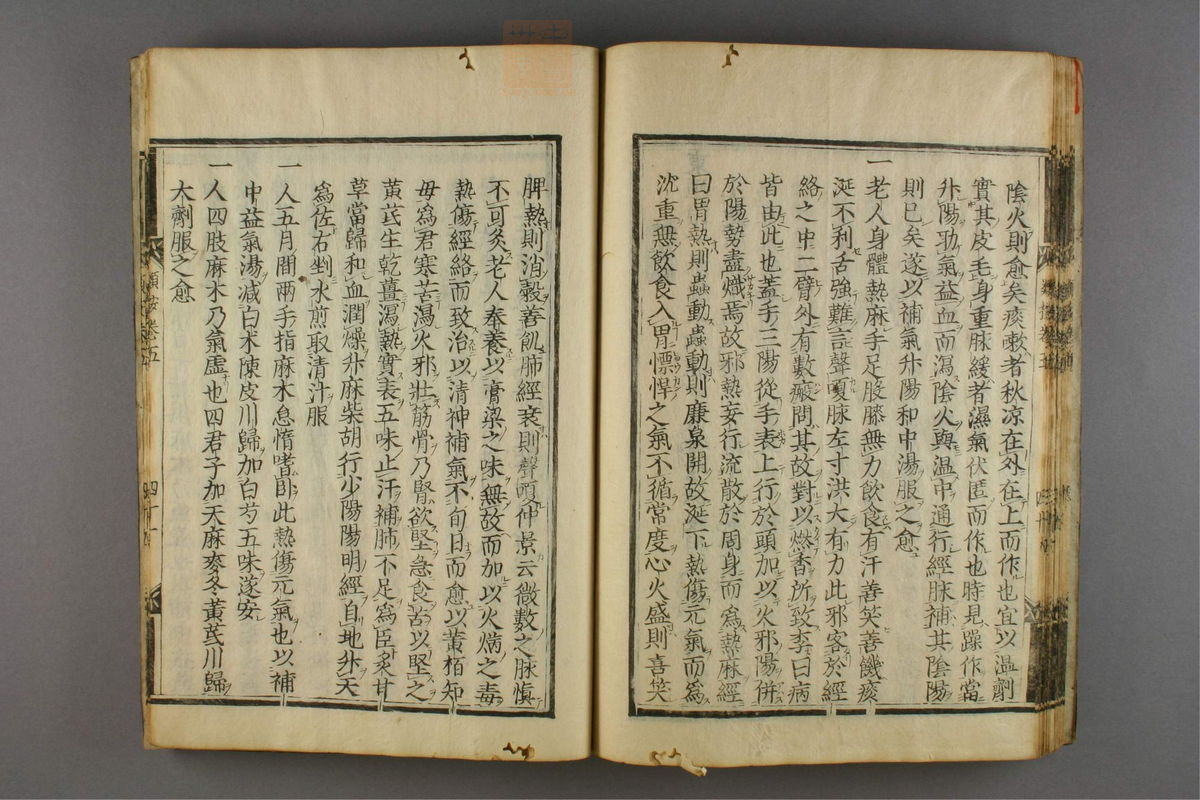 陰火則愈矣痰嗽者秋凉在外在上而作也宜以温劑
實其皮毛身重脉緩者濕氣伏匿而作也時見躁作當
升陽助氣益血而瀉陰火與温中通行經脉補其陰陽
則已矣遂以補氣升陽和中湯服之愈
一老人身體熱麻手足股膝無力飲食有汗善笑善饑痰
涎不利舌強難言聲嗄脉左寸洪大有力此邪客於經
絡之中二臂外有數瘢問其故對以燃香所致李曰病
皆由此也蓋手三陽從手表上行於頭加以火邪陽併
於陽勢盡熾焉故邪熱妄行流散於周身而為熱麻經
曰胃熱則蟲動蟲動則廉泉開故涎下熱傷元氣而為
沈重無飲食入胃慓悍之氣不循常度心火盛則喜笑
脾熱則消穀善飢肺經衰則聲嗄仲景云微數之脉慎
不可灸老人奉養以膏粱之味無故而加以火焫之毒
熱傷經絡而致治以清神補氣不旬日而愈以黄栢知
毋為君寒苦瀉火邪壯筋骨乃腎欲堅急食苦以堅之
黄芪生乾薑瀉熱實表五味止汗補肺不足為臣炙甘
草當歸和血潤燥升麻柴胡行少陽陽明經自地升天
為佐右剉水煎取清汁服
一人五月間兩手指麻木怠惰嗜卧此熱傷元氣也以補
中益氣湯減白术陳皮川歸加白芍五味遂安
一人四肢麻木乃氣虚也四君子加天麻麥冬黄芪川歸
大劑服之愈
類案卷五
四十一